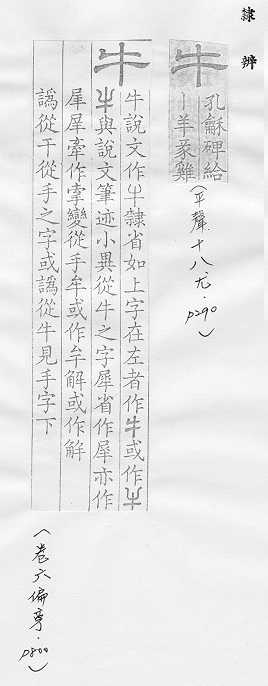 隸辨
牛
孔龢碑給
丨羊豕雞
（平聲十八尤．p290）
牛
牛說文作牛隸省如上字在左者作牛或作牜
牛與說文筆迹小異從牛之字犀省作犀亦作
犀犀牽作變從手牟或作牟解或作觧
譌從干從手之字或譌從牛見手字下
（卷六偏旁．p800）